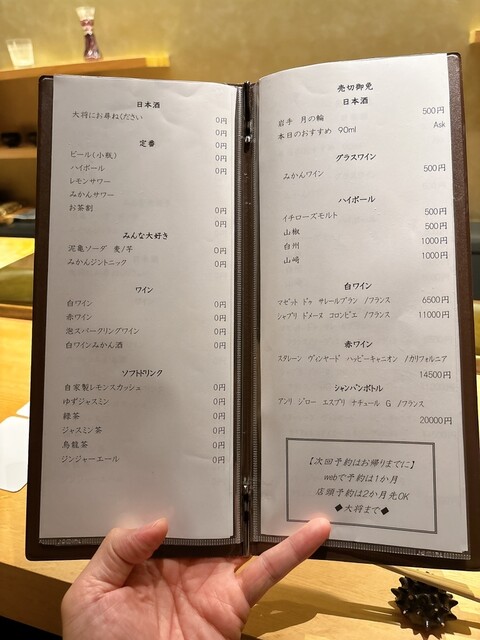 日本酒
大将にお尋ねください 0円
0円
定番 0円
ビール(小瓶) 0円
ハイボール 0円
レモンサワー
みかんサワー
お茶割 0円
0円
みんな大好き
泥亀ソーダ 麦/芋 0円
みかんジントニック 0円
ワイン
白ワイン 0円
赤ワイン 0円
泡スパークリングワイン 0円
白ワインみかん酒 0円
ソフトドリンク
自家製レモンスカッシュ 0円
ゆずジャスミン 0円
緑茶 0円
ジャスミン茶 0円
烏龍茶 0円
ジンジャーエール 0円
売切御免
日本酒
岩手 月の輪 500円
本日のおすすめ 90ml Ask
グラスワイン
みかんワイン 500円
ハイボール
イチローズモルト 500円
山椒 500円
白州 1000円
山崎 1000円
白ワイン
マゼット ドゥ サレールブラン /フランス 6500円
シャブリ ドメーヌ コロンビエ /フランス 11000円
赤ワイン
スタレーン ヴィンヤード ハッピーキャニオン /カリフォルニア
14500円
シャンパンボトル
アンリ ジロー エスプリ ナチュール G /フランス
20000円
【次回予約はお帰りまでに】
webで予約は1か月
店頭予約は2か月先OK
◆大将まで◆